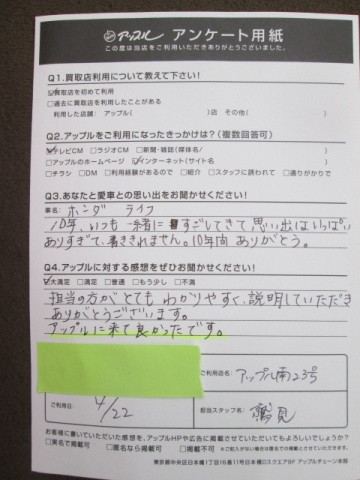 アップル アンケート用紙
この度は当店をご利用いただきありがとうございました。
Q1.買取店利用について教えて下さい!
買取店を初めて利用
□過去に買取店を利用したことがある
利用した店舗: アップル( )店 その他( )
Q2.アップルをご利用になったきっかけは?(複数回答可)
テレビCM □ラジオCM □新聞・雑誌(媒体名/ )
□アップルのホームページ インターネット(サイト名 )
□チラシ □DM □利用経験があるので □紹介 □スタッフに誘われて □通りがかりで
Q3.あなたと愛車との思い出をお聞かせください!
車名: ホンダ ライフ
10年、いつも一緒にすごしてきて思い出はいっぱい
ありすぎて、書ききれません。10年間ありがとう。
Q4.アップルに対する感想をぜひお聞かせください!
大満足 □満足 □普通 □もう少し □不満
担当の方がとてもわかりやすく、説明していただき
ありがとうございます。
アップルに来て良かったです。
ご利用店名: アップル南23号
ご利用日: 4/22
担当スタッフ名: 鷲見
お客様に書いていただいた感想を、アップルHPや広告に掲載させていただいてもよろしいでしょうか?
□実名で掲載可 □匿名なら掲載可 □掲載不可
※ご記入がない場合は匿名での掲載とさせていただきます。
東京都中央区日本橋1丁目16番11号日本橋Dスクエア8F アップルチェーン本部